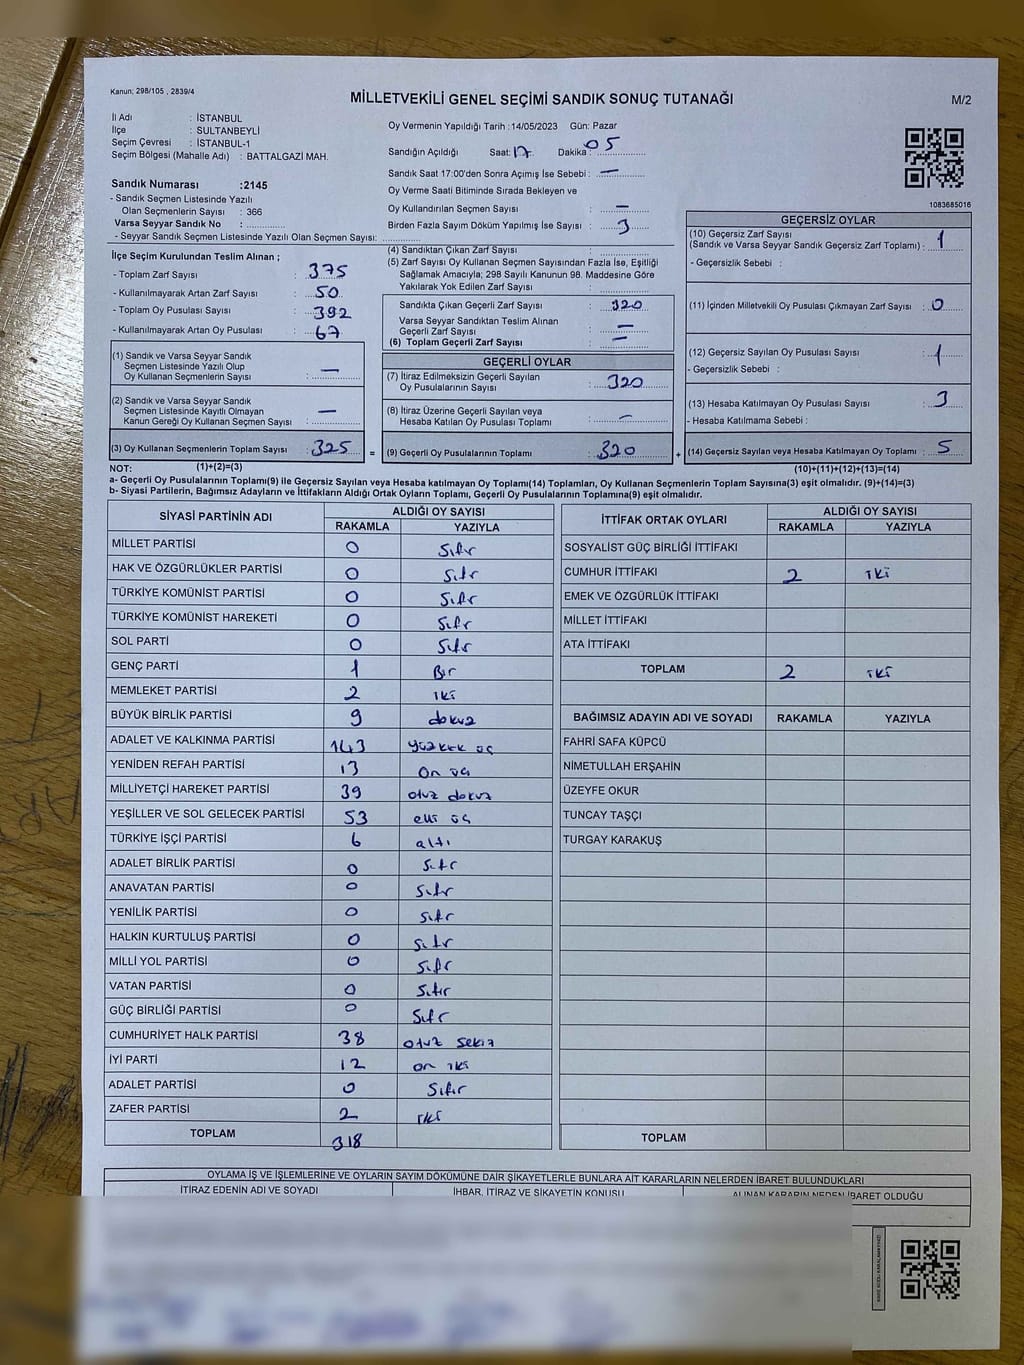 Kanun; 298/105 , 2839/4
MİLLETVEKİLİ GENEL SEÇİMİ SANDIK SONUÇ TUTANAĞI
M/2
İl Adı : İSTANBUL
İlçe : SULTANBEYLİ
Seçim Çevresi : İSTANBUL-1
Seçim Bölgesi (Mahalle Adı) : BATTALGAZİ MAH.
Sandık Numarası :2145
- Sandık Seçmen Listesinde Yazılı
Olan Seçmenlerin Sayısı : 366
Varsa Seyyar Sandık No :
- Seyyar Sandık Seçmen Listesinde Yazılı Olan Seçmen Sayısı:
İlçe Seçim Kurulundan Teslim Alınan ;
- Toplam Zarf Sayısı : 375
- Kullanılmayarak Artan Zarf Sayısı : 50
- Toplam Oy Pusulası Sayısı : 392
- Kullanılmayarak Artan Oy Pusulası : 67
(1) Sandık ve Varsa Seyyar Sandık
Seçmen Listesinde Yazılı Olup
Oy Kullanan Seçmenlerin Sayısı : —
(2) Sandık ve Varsa Seyyar Sandık
Seçmen Listesinde Kayıtlı Olmayan
Kanun Gereği Oy Kullanan Seçmen Sayısı : —
(3) Oy Kullanan Seçmenlerin Toplam Sayısı : 325
Oy Vermenin Yapıldığı Tarih :14/05/2023 Gün: Pazar
Sandığın Açıldığı Saat: 17 Dakika : 05
Sandık Saat 17:00'den Sonra Açımış İse Sebebi : —
Oy Verme Saati Bitiminde Sırada Bekleyen ve
Oy Kullandırılan Seçmen Sayısı : —
Birden Fazla Sayım Döküm Yapılmış İse Sayısı : 3
(4) Sandıktan Çıkan Zarf Sayısı :
(5) Zarf Sayısı Oy Kullanan Seçmen Sayısından Fazla İse, Eşitliği
Sağlamak Amacıyla; 298 Sayılı Kanunun 98. Maddesine Göre
Yakılarak Yok Edilen Zarf Sayısı :
Sandıkta Çıkan Geçerli Zarf Sayısı : 320
Varsa Seyyar Sandıktan Teslim Alınan
Geçerli Zarf Sayısı : —
(6) Toplam Geçerli Zarf Sayısı : —
GEÇERLİ OYLAR
(7) İtiraz Edilmeksizin Geçerli Sayılan
Oy Pusulalarının Sayısı : 320
(8) İtiraz Üzerine Geçerli Sayılan veya
Hesaba Katılan Oy Pusulası Toplamı : —
= (9) Geçerli Oy Pusulalarının Toplamı : 320
1083685016
GEÇERSİZ OYLAR
(10) Geçersiz Zarf Sayısı
(Sandık ve Varsa Seyyar Sandık Geçersiz Zarf Toplamı) : 1
- Geçersizlik Sebebi :
(11) İçinden Milletvekili Oy Pusulası Çıkmayan Zarf Sayısı : 0
(12) Geçersiz Sayılan Oy Pusulası Sayısı : 1
- Geçersizlik Sebebi :
(13) Hesaba Katılmayan Oy Pusulası Sayısı : 3
- Hesaba Katılmama Sebebi :
+ (14) Geçersiz Sayılan veya Hesaba Katılmayan Oy Toplamı : 5
NOT: (1)+(2)=(3) (10)+(11)+(12)+(13)=(14)
a- Geçerli Oy Pusulalarının Toplamı(9) ile Geçersiz Sayılan veya Hesaba katılmayan Oy Toplamı(14) Toplamları, Oy Kullanan Seçmenlerin Toplam Sayısına(3) eşit olmalıdır. (9)+(14)=(3)
b- Siyasi Partilerin, Bağımsız Adayların ve İttifakların Aldığı Ortak Oyların Toplamı, Geçerli Oy Pusulalarının Toplamına(9) eşit olmalıdır.
SİYASİ PARTİNİN ADI ALDIĞI OY SAYISI
RAKAMLA YAZIYLA
MİLLET PARTİSİ 0 Sıfır
HAK VE ÖZGÜRLÜKLER PARTİSİ 0 Sıfır
TÜRKİYE KOMÜNİST PARTİSİ 0 Sıfır
TÜRKİYE KOMÜNİST HAREKETİ 0 Sıfır
SOL PARTİ 0 Sıfır
GENÇ PARTİ 1 Bir
MEMLEKET PARTİSİ 2 iki
BÜYÜK BİRLİK PARTİSİ 9 dokuz
ADALET VE KALKINMA PARTİSİ 143 yüzkırk üç
YENİDEN REFAH PARTİSİ 13 on üç
MİLLİYETÇİ HAREKET PARTİSİ 39 otuz dokuz
YEŞİLLER VE SOL GELECEK PARTİSİ 53 elli üç
TÜRKİYE İŞÇİ PARTİSİ 6 altı
ADALET BİRLİK PARTİSİ 0 Sıfır
ANAVATAN PARTİSİ 0 Sıfır
YENİLİK PARTİSİ 0 Sıfır
HALKIN KURTULUŞ PARTİSİ 0 Sıfır
MİLLİ YOL PARTİSİ 0 Sıfır
VATAN PARTİSİ 0 Sıfır
GÜÇ BİRLİĞİ PARTİSİ 0 Sıfır
CUMHURİYET HALK PARTİSİ 38 otuz sekiz
İYİ PARTİ 12 on iki
ADALET PARTİSİ 0 Sıfır
ZAFER PARTİSİ 2 iki
TOPLAM 318
İTTİFAK ORTAK OYLARI ALDIĞI OY SAYISI
RAKAMLA YAZIYLA
SOSYALİST GÜÇ BİRLİĞİ İTTİFAKI
CUMHUR İTTİFAKI 2 iki
EMEK VE ÖZGÜRLÜK İTTİFAKI
MİLLET İTTİFAKI
ATA İTTİFAKI
TOPLAM 2 iki
BAĞIMSIZ ADAYIN ADI VE SOYADI RAKAMLA YAZIYLA
FAHRİ SAFA KÜPCÜ
NİMETULLAH ERŞAHİN
ÜZEYFE OKUR
TUNCAY TAŞÇI
TURGAY KARAKUŞ
TOPLAM
OYLAMA İŞ VE İŞLEMLERİNE VE OYLARIN SAYIM DÖKÜMÜNE DAİR ŞİKAYETLERLE BUNLARA AİT KARARLARIN NELERDEN İBARET BULUNDUKLARI
İTİRAZ EDENİN ADI VE SOYADI İHBAR, İTİRAZ VE ŞİKAYETİN KONUSU ALINAN KARARIN NEDEN İBARET OLDUĞU